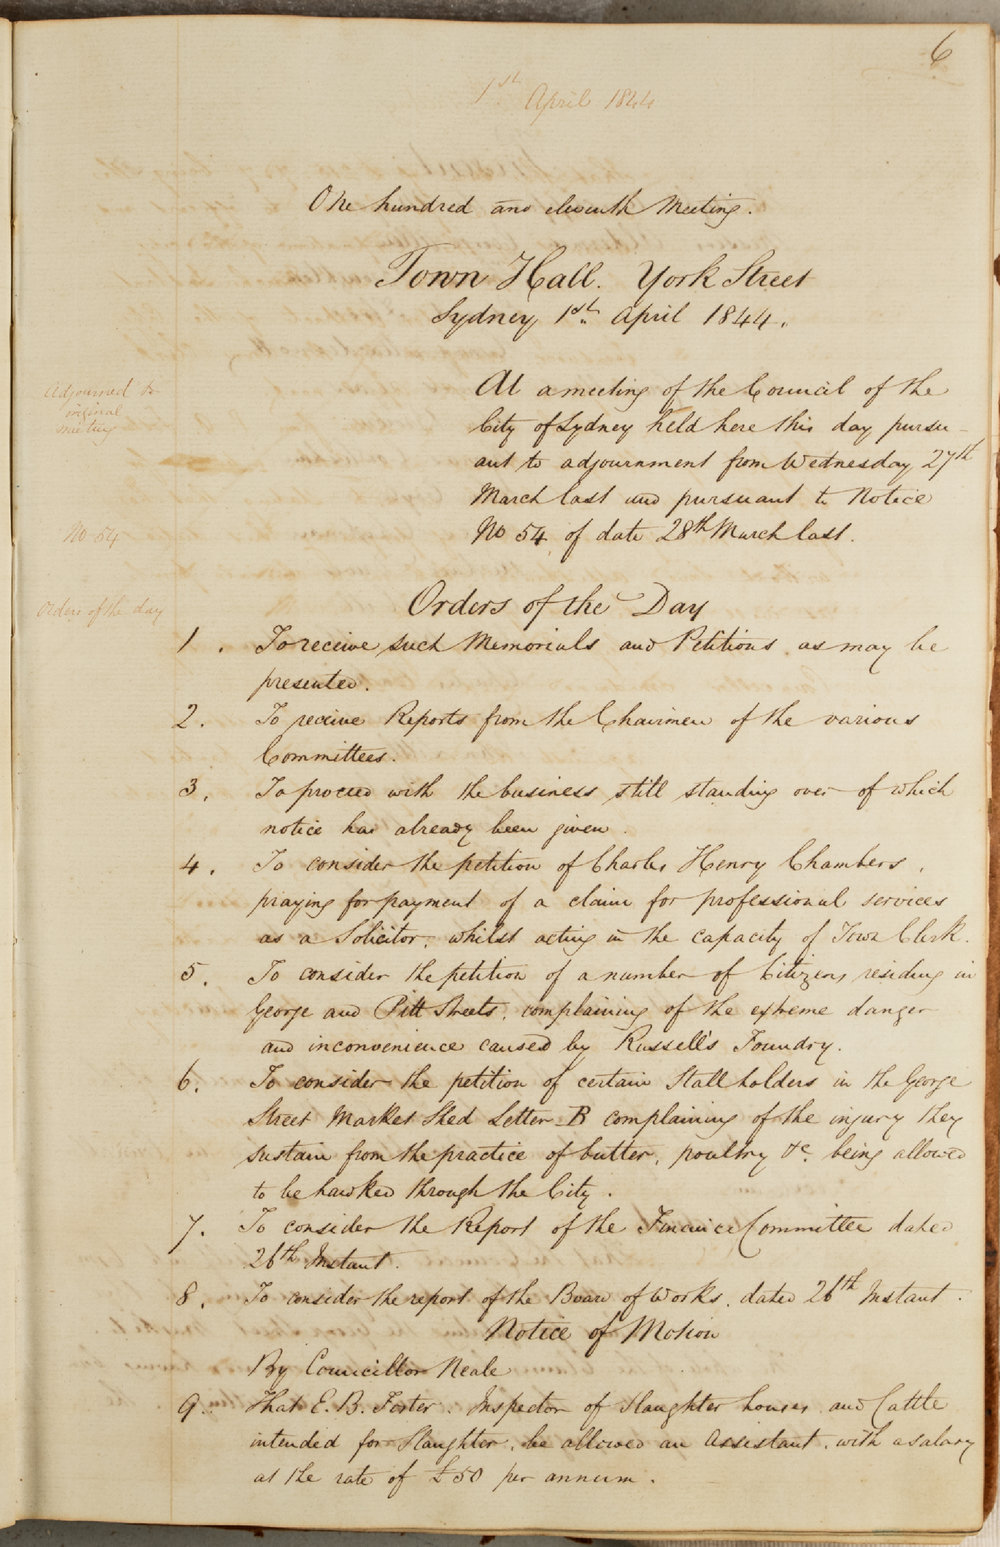 6
1st April 1844
One hundred and eleventh Meeting.
Town Hall. York Street
Sydney 1st April 1844.
Adjourned to
original
meeting
At a meeting of the Council of the
City of Sydney held here this day pursu-
ant to adjournment from Wednesday 27th
March last and pursuant to Notice
No 54
No 54 of date 28th March last.
Orders of the day
Orders of the Day
1. To receive such Memorials and Petitions as may be
presented.
2. To receive Reports from the Chairmen of the various
Committees.
3. To proceed with the business still standing over of which
notice has already been given.
4. To consider the petition of Charles Henry Chambers,
praying for payment of a claim for professional services
as a Solicitor, whilst acting in the capacity of Town Clerk.
5. To consider the petition of a number of Citizens residing in
George and Pitt Streets, complaining of the extreme danger
and inconvenience caused by Russell's Foundry.
6. To consider the petition of certain Stallholders in the George
Street Market Shed Letter B complaining of the injury they
sustain from the practice of butter, poultry &c. being allowed
to be hawked through the City.
7. To consider the Report of the Finance Committee dated
26th Instant.
8. To consider the report of the Board of Works, dated 26th Instant.
Notice of Motion
By Councillor Neale
9. That E. B. Foster. Inspector of Slaughter houses and Cattle
intended for Slaughter, be allowed an Assistant, with a salary
at the rate of £50 per annum.